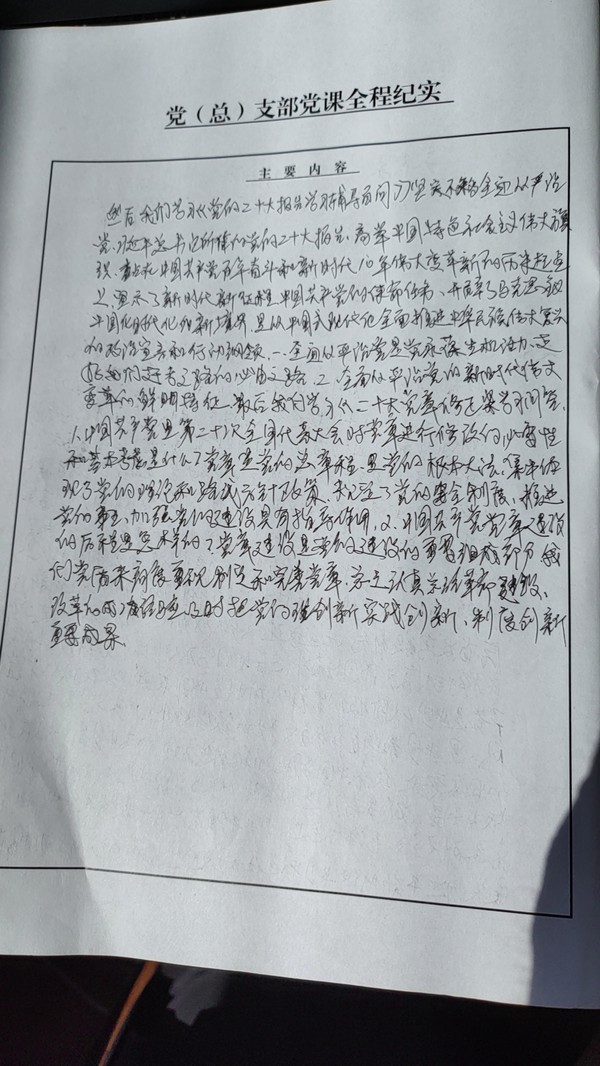 党（总）支部党课全程纪实
主要内容
然后我们学习《党的二十大报告学习辅导百问》坚定不移全面从严治
党、习近平总书记所作的党的二十大报告、高举中国特色社会主义伟大旗
帜、在中国共产党百年奋斗和新时代10年伟大变革新的历史起点
上、宣示了新时代新征程中国共产党的使命任务、开辟了马克思主义
中国化时代化的新境界、是以中国式现代化全面推进中华民族伟大复兴
的政治宣言和行动纲领。一、全面从严治党是党永葆生机活力、走
好的赶考之路的必由之路 2、全面从严治党的新时代伟大
变革的鲜明特征、最后我们学习《二十大党章修正案学习问答》
1、中国共产党第二十次全国代表大会对党章进行修改的必要性
和基本考虑是什么？党章是党的总章程、是党的根本大法、集中体
现了党的理论和路线方针政策、规定了党的 制度、推进
党的事业、加强党的建设具有指导作用。2、中国共产党党章建设
的历程是怎样的？党章建设是党的建设的重要组成部分 我
们党历来高度重视制定和完善党章、 认真总结革命建设、
改革 及时把党的理论创新 实践创新、制度创新
重要成果